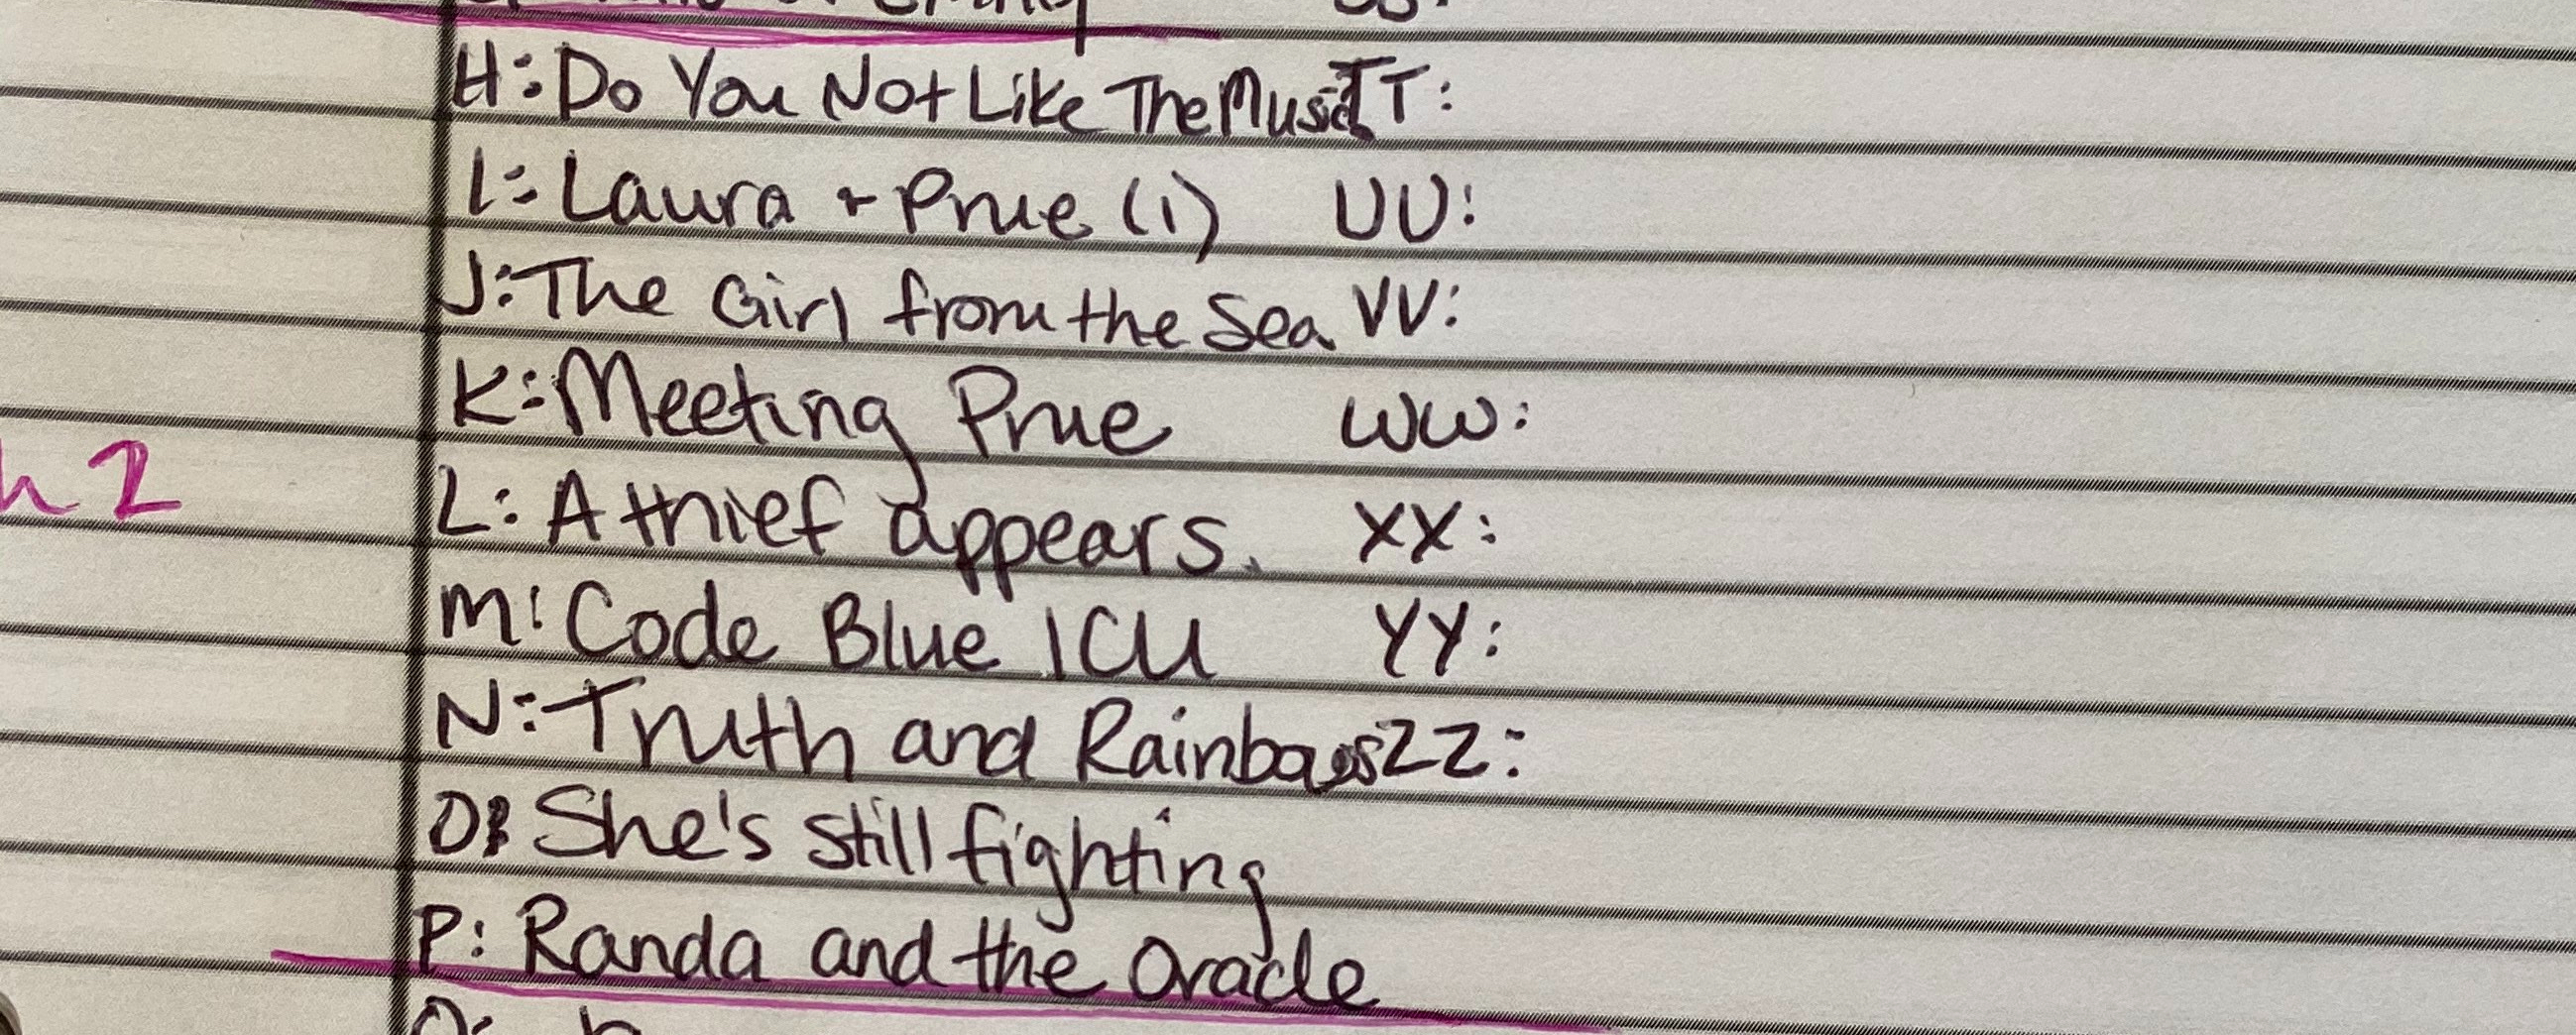 H: Do You Not Like The Music TT:
I: Laura + Prue (1) UU:
J: The Girl from the Sea VV:
K: Meeting Prue WW:
h 2
L: A thief appears. XX:
M: Code Blue ICU YY:
N: Truth and Rainbows ZZ:
O: She's still fighting
P: Randa and the Oracle